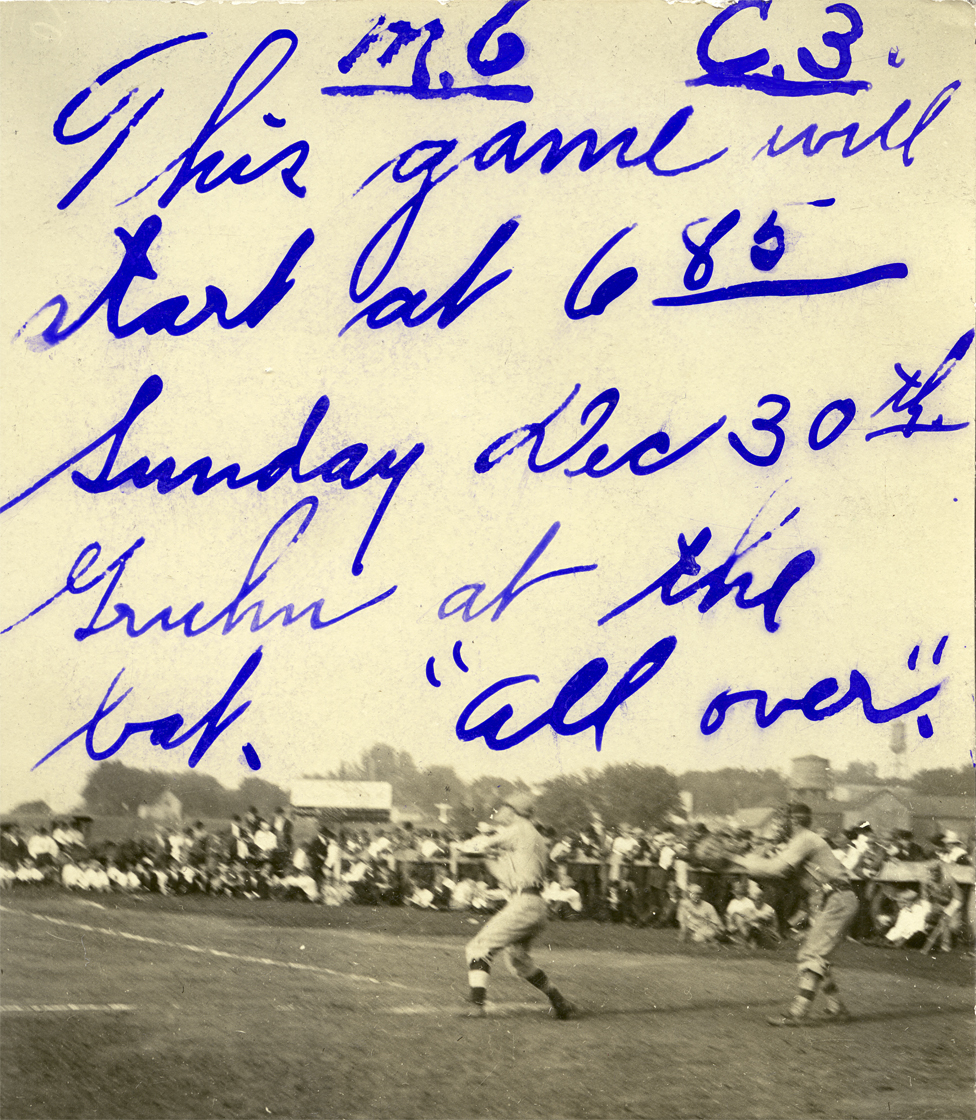 M.6 C.3.
This game will
start at 6 85
Sunday Dec 30th.
Gruhn at the
bat. "All over".